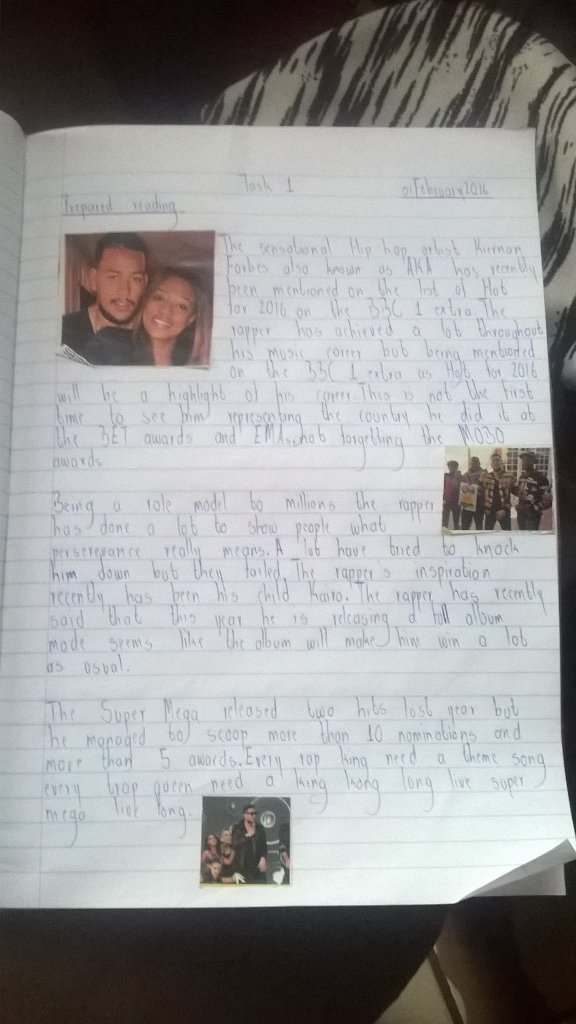 Task 1
01February2016
Prepared reading
The sensational Hip hop artist Kiernan
Forbes also known as AKA has recently
been mentioned on the list of Hot
for 2016 on the BBC 1 extra. The
rapper has achieved a lot throughout
his music career but being mentioned
on the BBC 1 extra as Hot for 2016
will be a highlight of his career. This is not the first
time to see him representing the country he did it at
the BET awards and EMAs, not forgetting the MOBO
awards.
Being a role model to millions the rapper
has done a lot to show people what
perserevance really means. A lot have tired to knock
him down but they failed. The rapper's inspiration
recently has been his child Kairo. The rapper has recently
said that this year he is releasing a full album
mode seems like the album will make him win a lot
as usual.
The Super Mega released two hits last year but
he managed to scoop more than 10 nominations and
more than 5 awards. Every rap king need a theme song
every trap queen need a king kong long live super
mega live long.